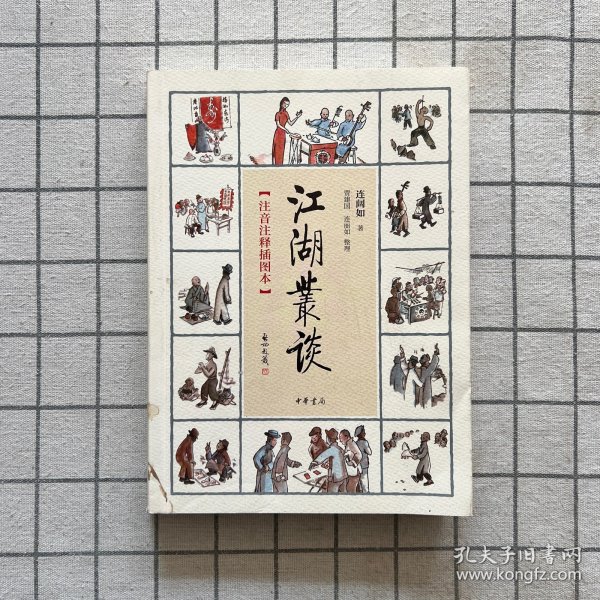 连阔如 著
贾建国 连丽如 整理
江湖丛谈
【注音注释插图本】
中华书局
孔夫子旧书网
www.kongfz.com